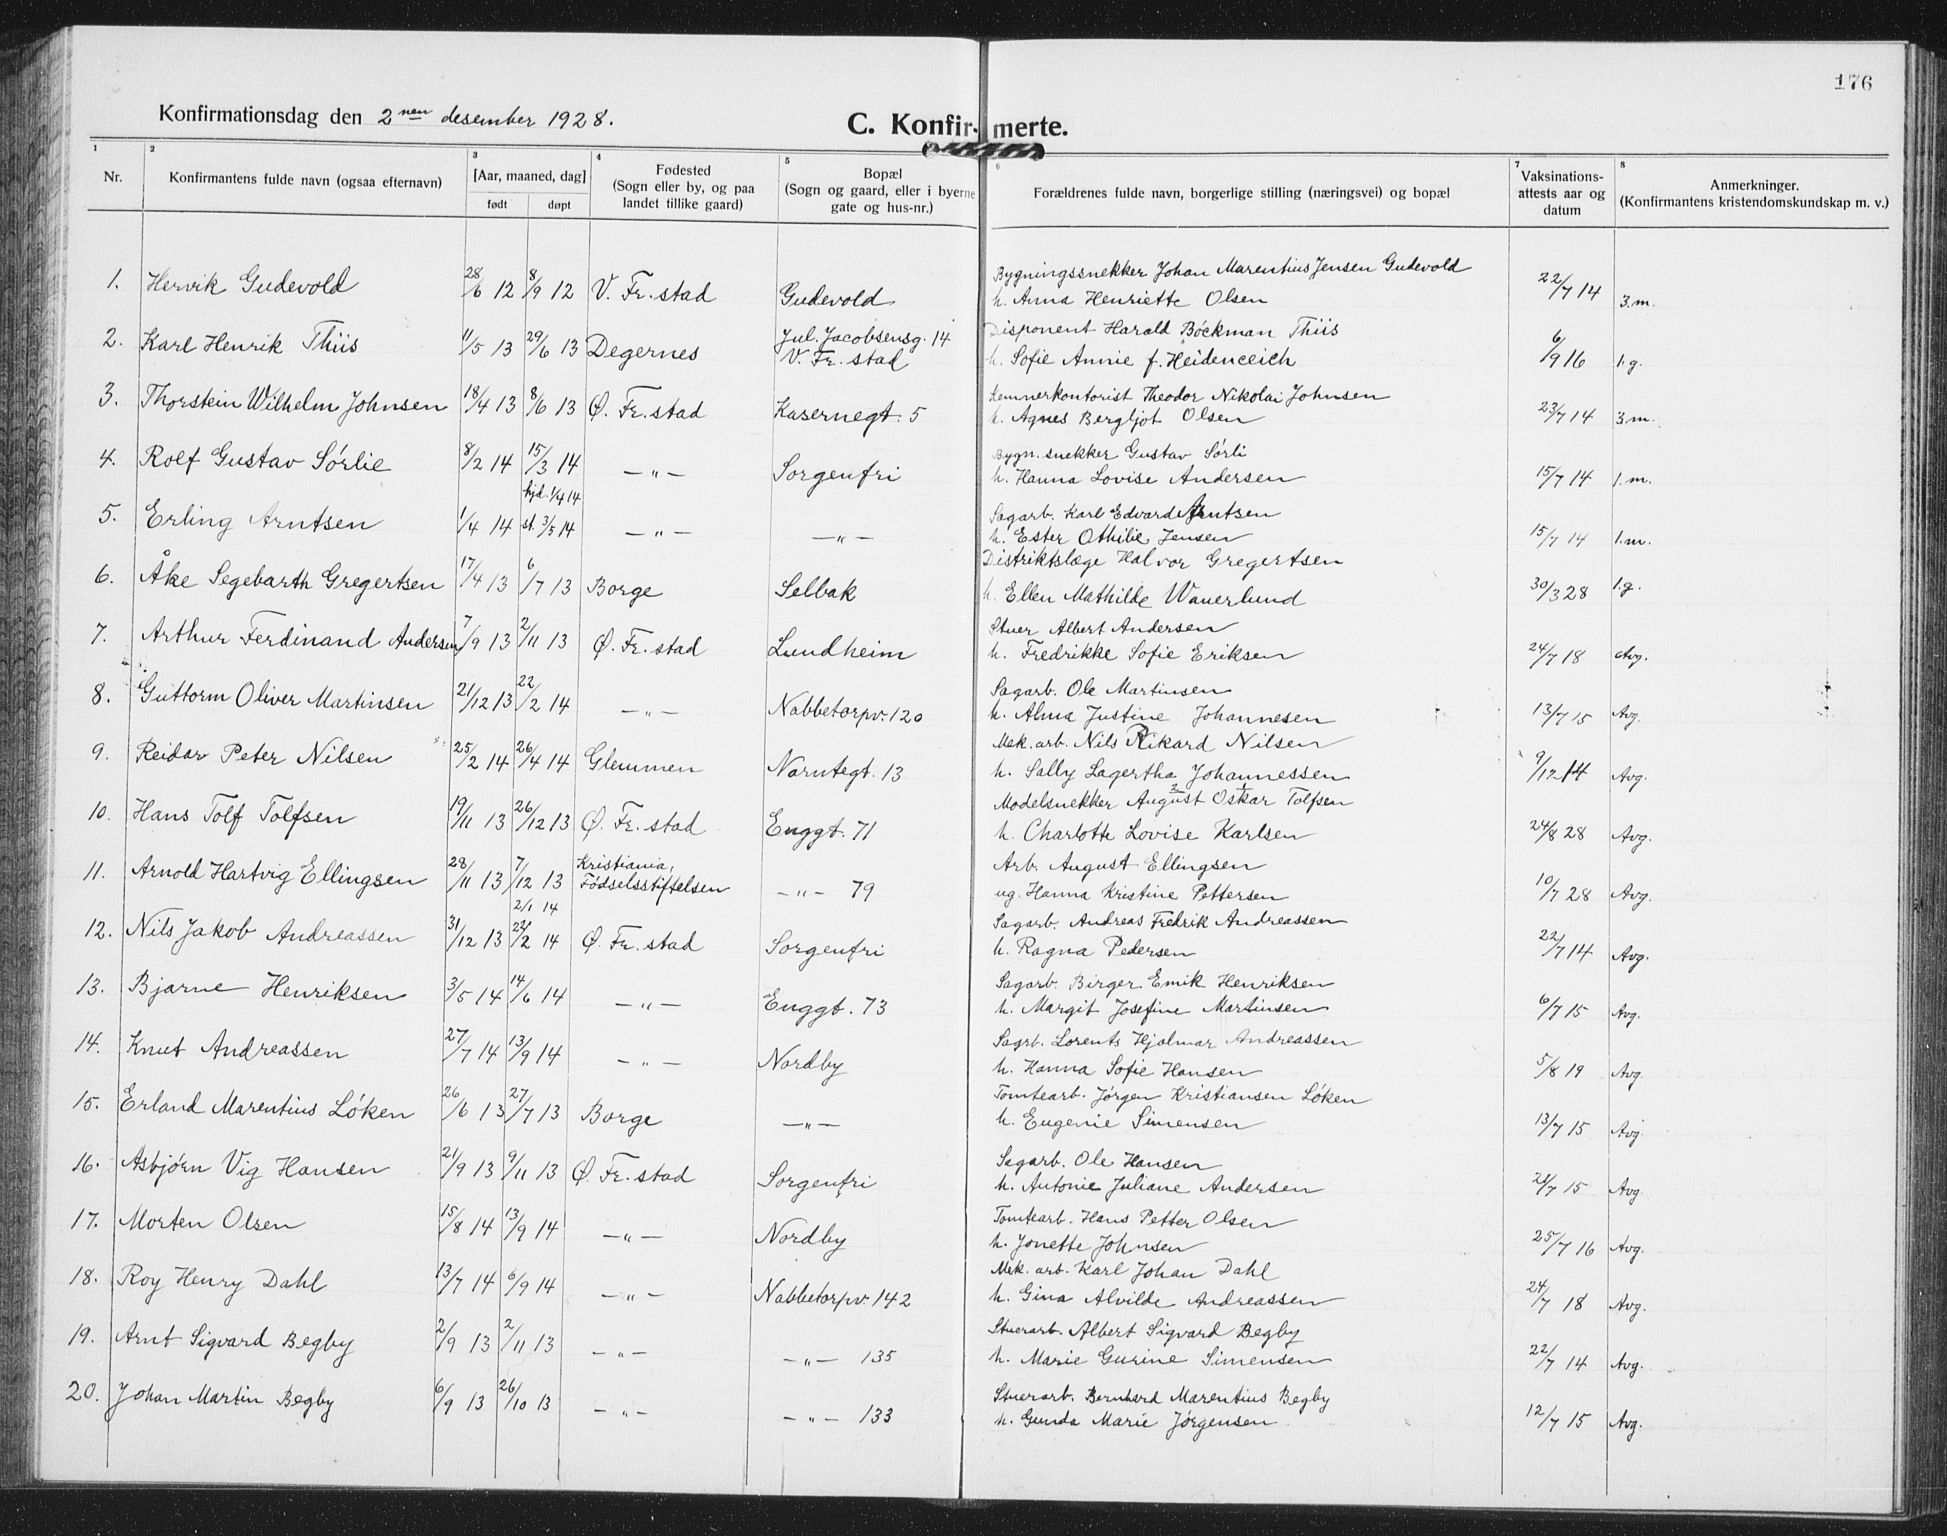 176
Konfirmationsdag den 2nen desember 1928.
C. Konfirmerte.
1 2 3 4 5 6 7 8
Nr. Konfirmantens fulde navn (ogsaa efternavn) [Aar, maaned, dag] født døpt Fødested (Sogn eller by, og paa landet tillike gaard) Bopæl (Sogn og gaard, eller i byerne gate og hus-nr.) Forældrenes fulde navn, borgerlige stilling (næringsvei) og bopæl Vaksinations-attests aar og datum Anmerkninger. (Konfirmantens kristendomskundskap m. v.)
1. Henrik Gudevold 28/6 12 8/9 12 V. Fr.stad Gudevold Bygningssnekker Johan Marentius Jensen Gudevold
h. Anna Henriette Olsen 22/7 14 3.m.
2. Karl Henrik Thiis 11/5 13 29/6 13 Degernes Jul. Jacobsensg. 14 V. Fr.stad Disponent Harald Böckman Thiis
h. Sofie Annie f. Heidenreich 6/9 16 1.g.
3. Thorstein Wilhelm Johnsen 18/4 13 8/6 13 Ø. Fr.stad Kasernegt. 5 Kemnerkontorist Theodor Nikolai Johnsen
h. Agnes Bergljot Olsen 23/7 14 3.m.
4. Rolf Gustav Sørlie 8/2 14 15/3 14 —"— Sorgenfri Bygn.snekker Gustav Sørli
h. Hanna Lovise Andersen 15/7 14 1.m.
5. Erling Arntsen 1/4 14 hjd. 1/4 14 st. 3/5 14 —"— —"— Sagarb. Karl Edvard Arntsen
h. Ester Othilie Jensen 15/7 14 1.m.
6. Åke Segebarth Gregertsen 17/4 13 6/7 13 Borge Selbak Distriktslæge Halvor Gregertsen
h. Ellen Mathilde Wanerlund 30/3 28 1.g.
7. Arthur Ferdinand Andersen 7/9 13 2/11 13 Ø. Fr.stad Lundheim Stuer Albert Andersen
h. Fredrikke Sofie Eriksen 24/7 18 Avg.
8. Guttorm Oliver Martinsen 21/12 13 22/2 14 —"— Nabbetorpv. 120 Sagarb. Ole Martinsen
h. Alma Justine Johannesen 13/7 15 Avg.
9. Reidar Peter Nilsen 25/2 14 26/4 14 Glemmen Narntegt. 13 Mek. arb. Nils Rikard Nilsen
h. Sally Lagertha Johannessen 9/12 14 Avg.
10. Hans Tolf Tolfsen 19/11 13 26/12 13 Ø. Fr.stad Enggt. 71 Modelsnekker August Oskar Tolfsen
h. Charlotte Lovise Karlsen 24/8 28 Avg.
11. Arnold Hartvig Ellingsen 28/11 13 7/12 13 Kristiania, Fødselsstiftelsen —"— 79 Arb. August Ellingsen
ug. Hanna Kristine Pettersen 10/7 28 Avg.
12. Nils Jakob Andreassen 31/12 13 2/1 14 22/2 14 Ø. Fr.stad Sorgenfri Sagarb. Andreas Fredrik Andreassen
h. Ragna Pedersen 22/7 14 Avg.
13. Bjarne Henriksen 3/5 14 14/6 14 —"— Enggt. 73 Sagarb. Birger Emik Henriksen
h. Margit Josefine Martinsen 6/7 15 Avg.
14. Knut Andreassen 27/7 14 13/9 14 —"— Nordby Sagrb. Lorents Hjalmar Andreassen
h. Hanna Sofie Hansen 5/8 19 Avg
15. Erland Marentius Løken 26/6 13 27/7 13 Borge —"— Tomtearb. Jørgen Kristiansen Løken
h. Eugenie Simensen 13/7 15 Avg.
16. Asbjørn Vig Hansen 21/9 13 9/11 13 Ø. Fr.stad Sorgenfri Sagarb. Ole Hansen
h. Antonie Juliane Andersen 21/7 15 Avg
17. Morten Olsen 15/8 14 13/9 14 —"— Nordby Tomtearb. Hans Petter Olsen
h. Jonette Johnsen 25/7 16 Avg.
18. Roy Henry Dahl 13/7 14 6/9 14 —"— Nabbetorpv. 142 Mek. arb. Karl Johan Dahl
h. Gina Alvilde Andreassen 24/7 18 Avg.
19. Arnt Sigvard Begby 2/9 13 2/11 13 —"— —"— 135 Stuerarb. Albert Sigvard Begby
h. Marie Gurine Simensen 22/7 14 Avg.
20. Johan Martin Begby 6/9 13 26/10 13 —"— —"— 133 Stuerarb. Bernhard Marentius Begby
h. Gunda Marie Jørgensen 12/7 15 Avg.